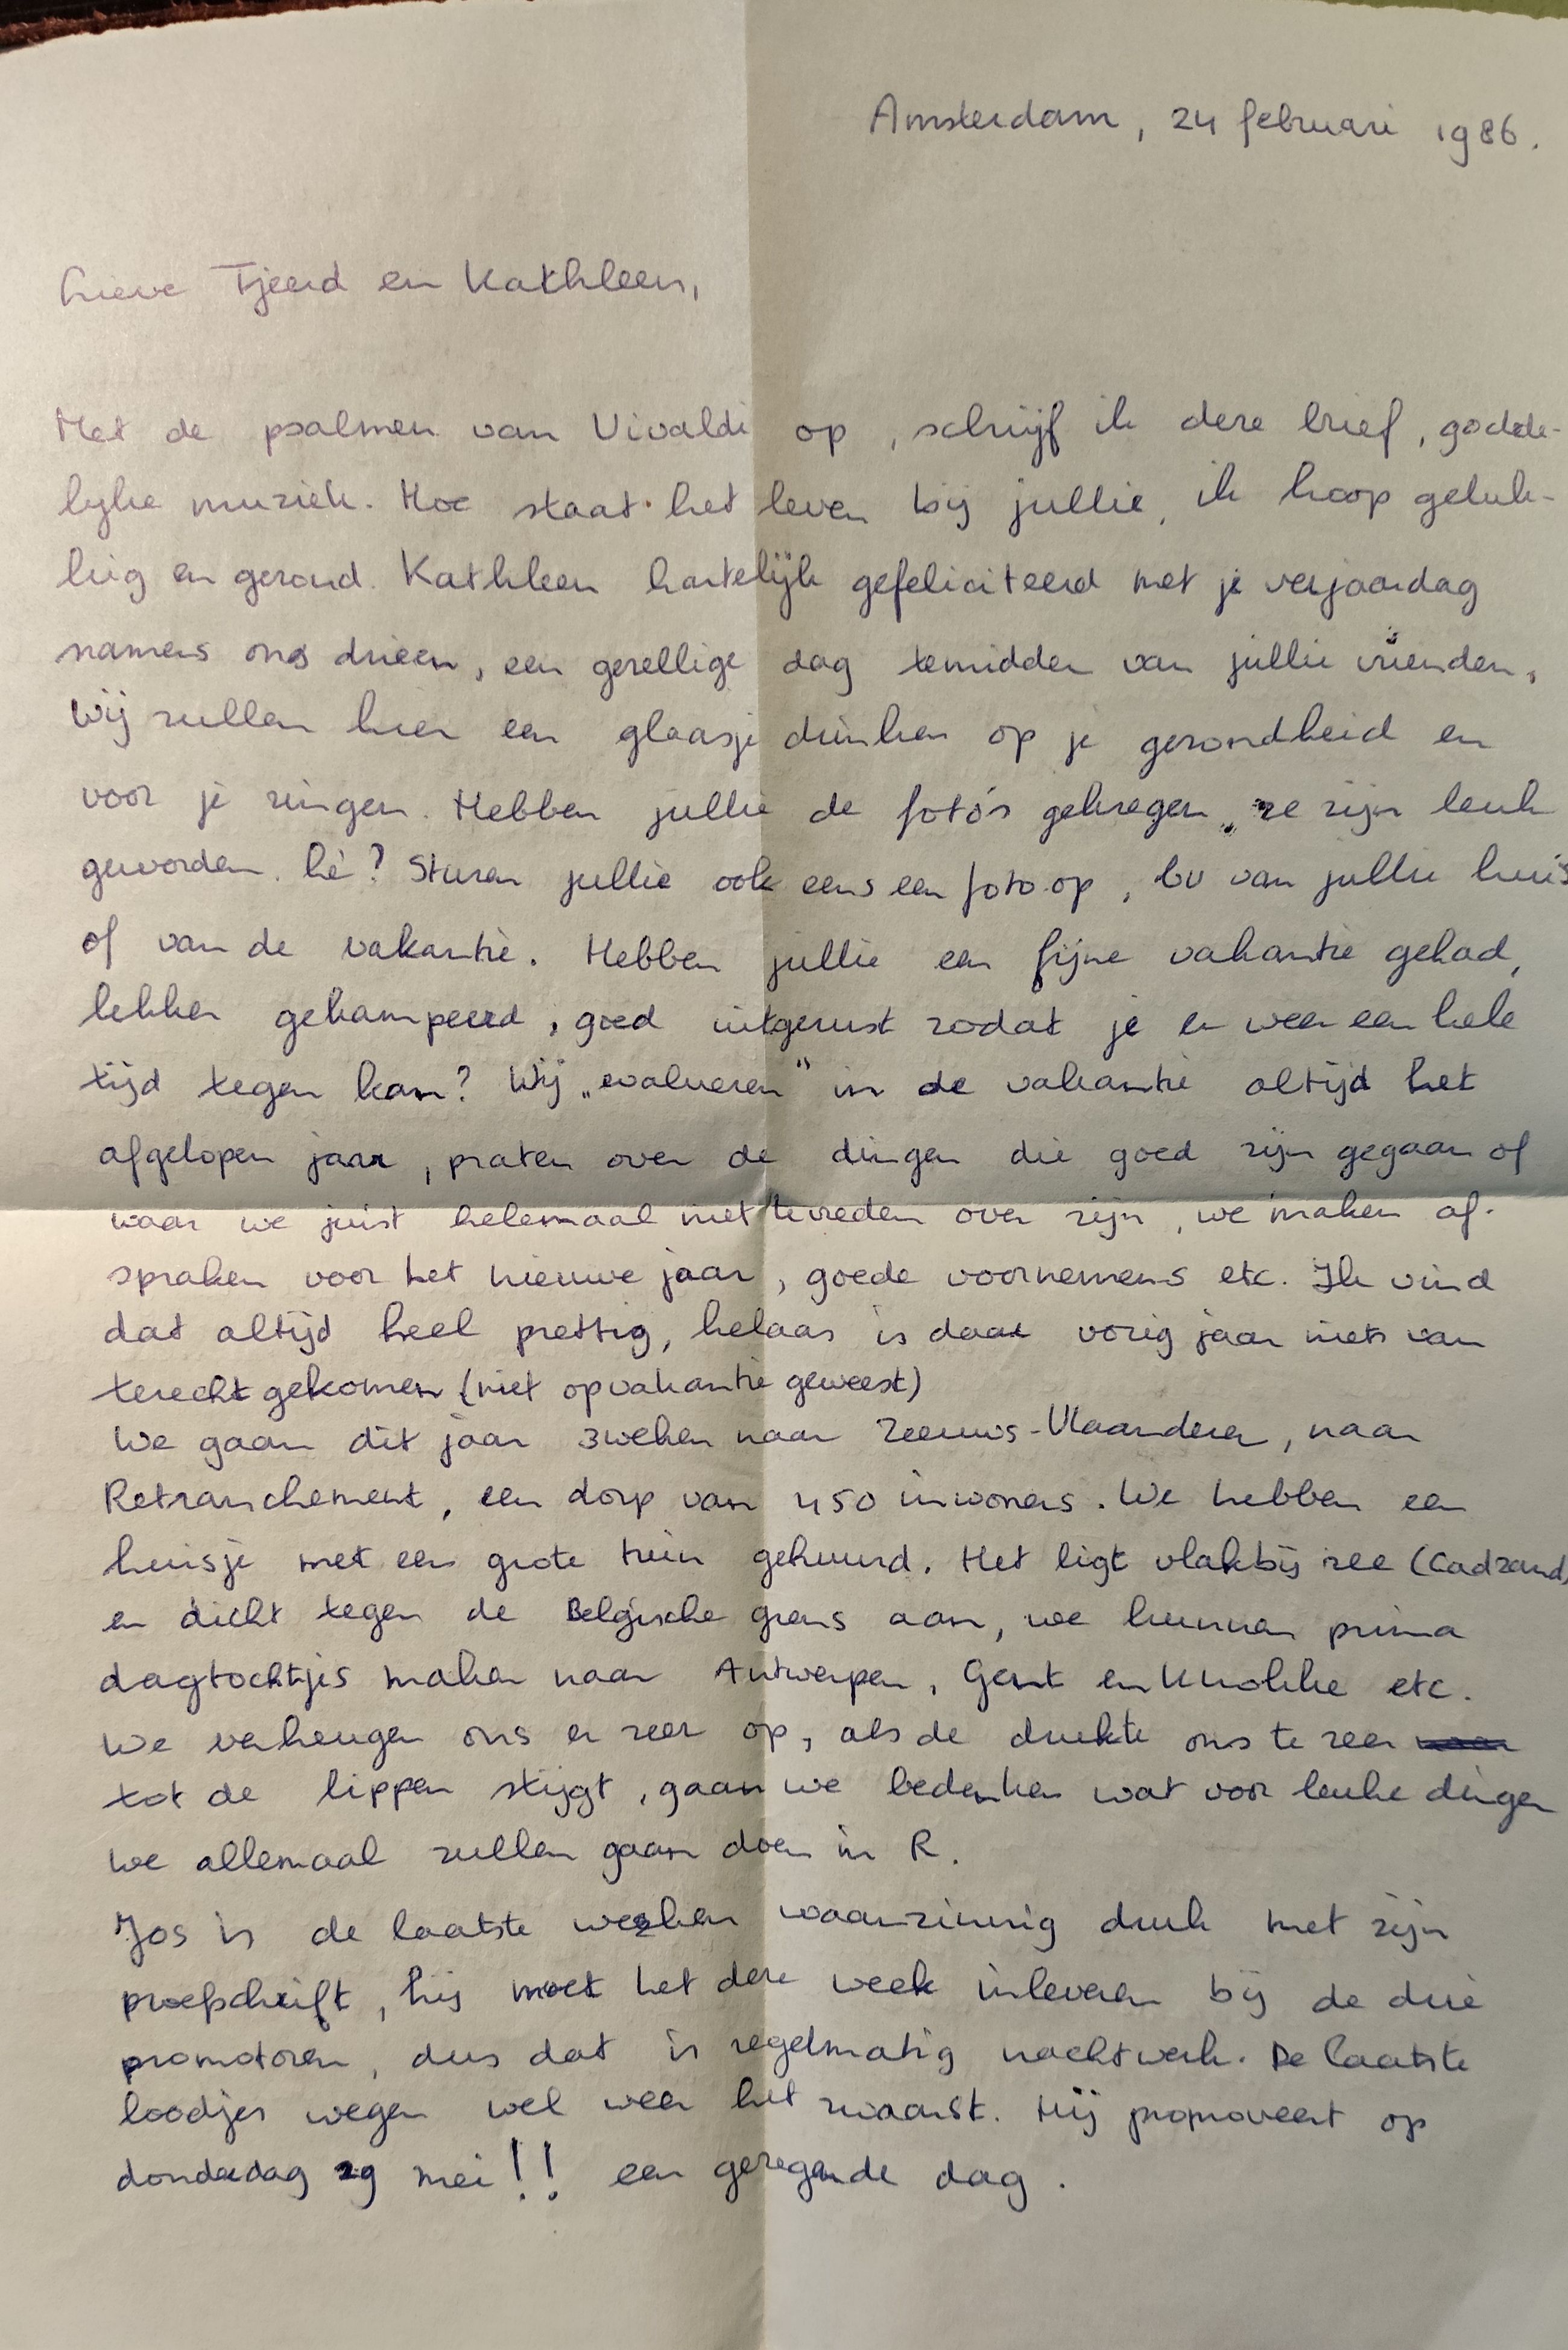 Amsterdam, 24 februari 1986.
Lieve Tjeerd en Kathleen,
Met de psalmen van Vivaldi op, schrijf ik deze brief, godde-
lijke muziek. Hoe staat het leven bij jullie, ik hoop geluk-
kig en gezond. Kathleen hartelijk gefeliciteerd met je verjaardag
namens ons drieën, een gezellige dag temidden van jullie vrienden,
Wij zullen hier een glaasje drinken op je gezondheid en
voor je zingen. Hebben jullie de foto's gekregen, ze zijn leuk
geworden, hè? Sturen jullie ook eens een foto op, bv van jullie huis
of van de vakantie. Hebben jullie een fijne vakantie gehad,
lekker gekampeerd, goed uitgerust zodat je er weer een hele
tijd tegen kan? Wij „evalueren" in de vakantie altijd het
afgelopen jaar, praten over de dingen die goed zijn gegaan of
waar we juist helemaal niet tevreden over zijn, we maken af-
spraken voor het nieuwe jaar, goede voornemens etc. Ik vind
dat altijd heel prettig, helaas is daar vorig jaar niets van
terecht gekomen (niet op vakantie geweest)
We gaan dit jaar 3 weken naar Zeeuws-Vlaanderen, naar
Retranchement, een dorp van 450 inwoners. We hebben een
huisje met een grote tuin gehuurd. Het ligt vlakbij zee (Cadzand)
en dicht tegen de Belgische grens aan, we kunnen prima
dagtochtjes maken naar Antwerpen, Gent en Knokke etc.
We verheugen ons er zeer op, als de drukte ons te zeer
tot de lippen stijgt, gaan we bedenken wat voor leuke dingen
we allemaal zullen gaan doen in R.
Jos is de laatste weken waanzinnig druk met zijn
proefschrift, hij moet het deze week inleveren bij de drie
promotoren, dus dat is regelmatig nachtwerk. De laatste
loodjes wegen wel weer het zwaarst. Hij promoveert op
donderdag 29 mei!! een gezegende dag.